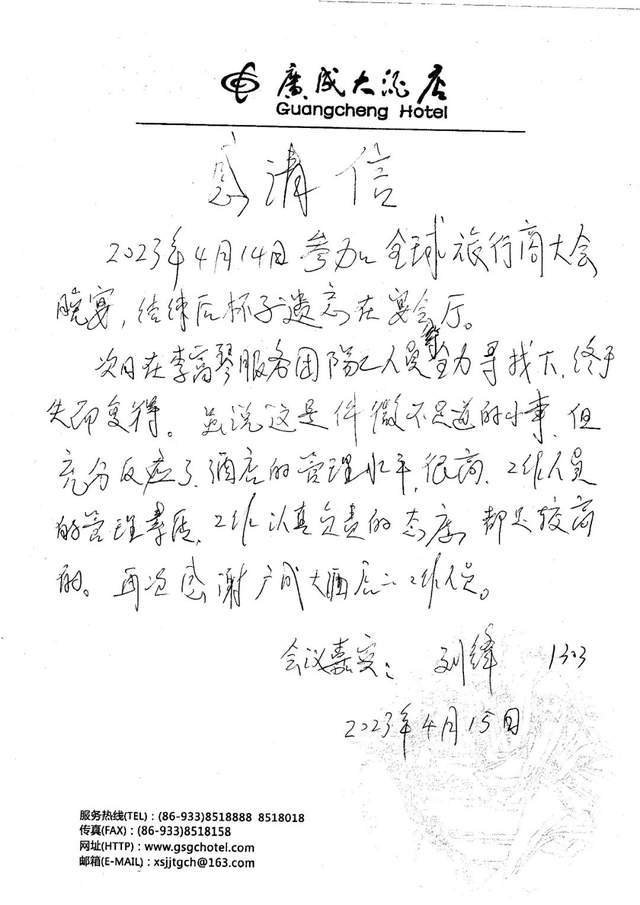 廣成大酒店
Guangcheng Hotel
感清信
2023年4月14日参加全球旅行商大会
晚宴，结束后杯子遗忘在宴会厅。
次日在李富琴服务团队工人员等全力寻找下，终于
失而复得。虽说这是件微不足道的小事，但
充分反应了酒店的管理水平很高，工作人员
的管理素质，工作认真负责的态度，都是较高
的。再次感谢广成大酒店工作人员。
会议嘉宾：刘锋 1303
2023年4月15日
服务热线(TEL)：(86-933)8518888 8518018
传真(FAX)：(86-933)8518158
网址(HTTP)：www.gsgchotel.com
邮箱(E-MAIL)：xsjjtgch@163.com